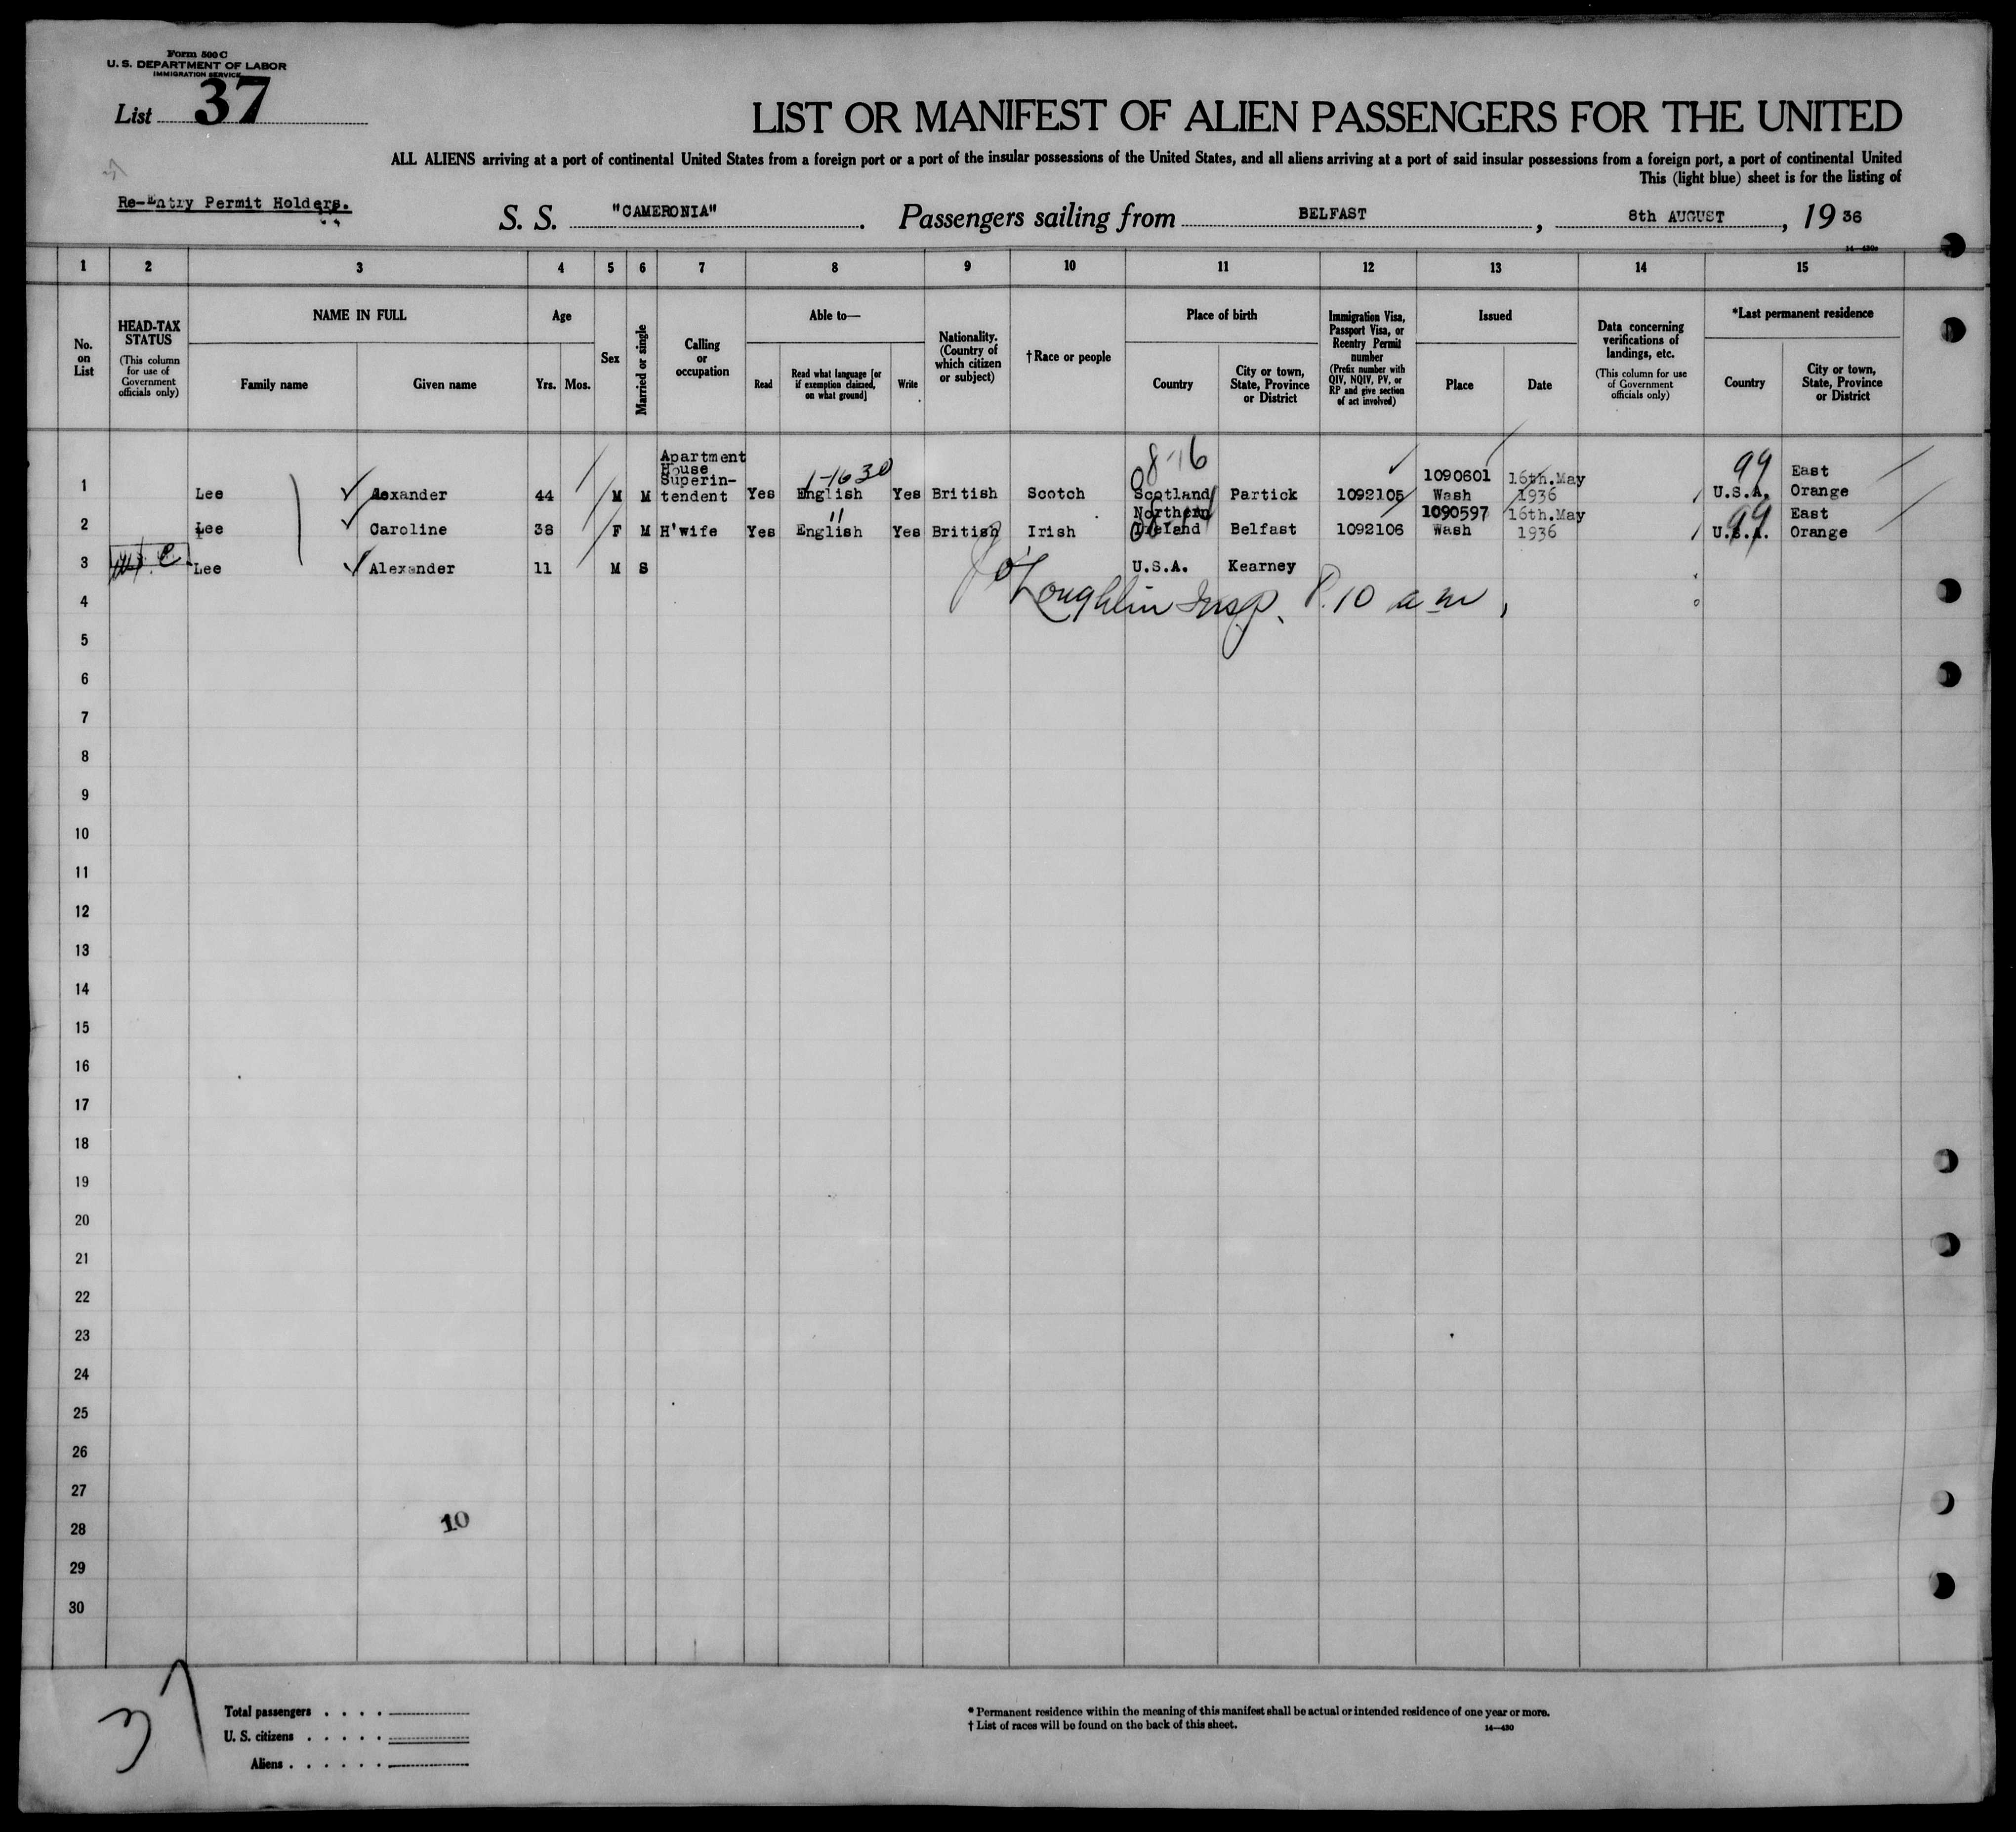 Form 500 C
U. S. DEPARTMENT OF LABOR
IMMIGRATION SERVICE
List 37
LIST OR MANIFEST OF ALIEN PASSENGERS FOR THE UNITED
ALL ALIENS arriving at a port of continental United States from a foreign port or a port of the insular possessions of the United States, and all aliens arriving at a port of said insular possessions from a foreign port, a port of continental United
This (light blue) sheet is for the listing of
Re-Entry Permit Holders.
S. S. "CAMERONIA". Passengers sailing from BELFAST, 8th AUGUST, 19 36
1 2 3 4 5 6 7 8 9 10 11 12 13 14 15
No. on List
HEAD-TAX STATUS
(This column for use of Government officials only)
NAME IN FULL
Family name
Given name
Age
Yrs. Mos.
Sex
Married or single
Calling or occupation
Able to—
Read
Read what language [or if exemption claimed, on what ground]
Write
Nationality. (Country of which citizen or subject)
†Race or people
Place of birth
Country
City or town, State, Province or District
Immigration Visa, Passport Visa, or Reentry Permit number
(Prefix number with QIV, NQIV, PV, or RP and give section of act involved)
Issued
Place
Date
Data concerning verifications of landings, etc.
(This column for use of Government officials only)
*Last permanent residence
Country
City or town, State, Province or District
1 Lee Alexander 44 M M Apartment House Superintendent Yes English Yes British Scotch Scotland Partick 1092105 1090601 Wash 16th.May 1936 99 U.S.A. East Orange
2 Lee Caroline 38 F M H'wife Yes English Yes British Irish Northern Ireland Belfast 1092106 1090597 Wash 16th.May 1936 99 U.S.A. East Orange
3 Lee Alexander 11 M S U.S.A. Kearney
4 O'Loughlin Insp. P. 10 am
5
6
7
8
9
10
11
12
13
14
15
16
17
18
19
20
21
22
23
24
25
26
27
28
29
30
10
37
Total passengers . . . .
U. S. citizens . . . . .
Aliens . . . . . .
* Permanent residence within the meaning of this manifest shall be actual or intended residence of one year or more.
† List of races will be found on the back of this sheet.
14—430